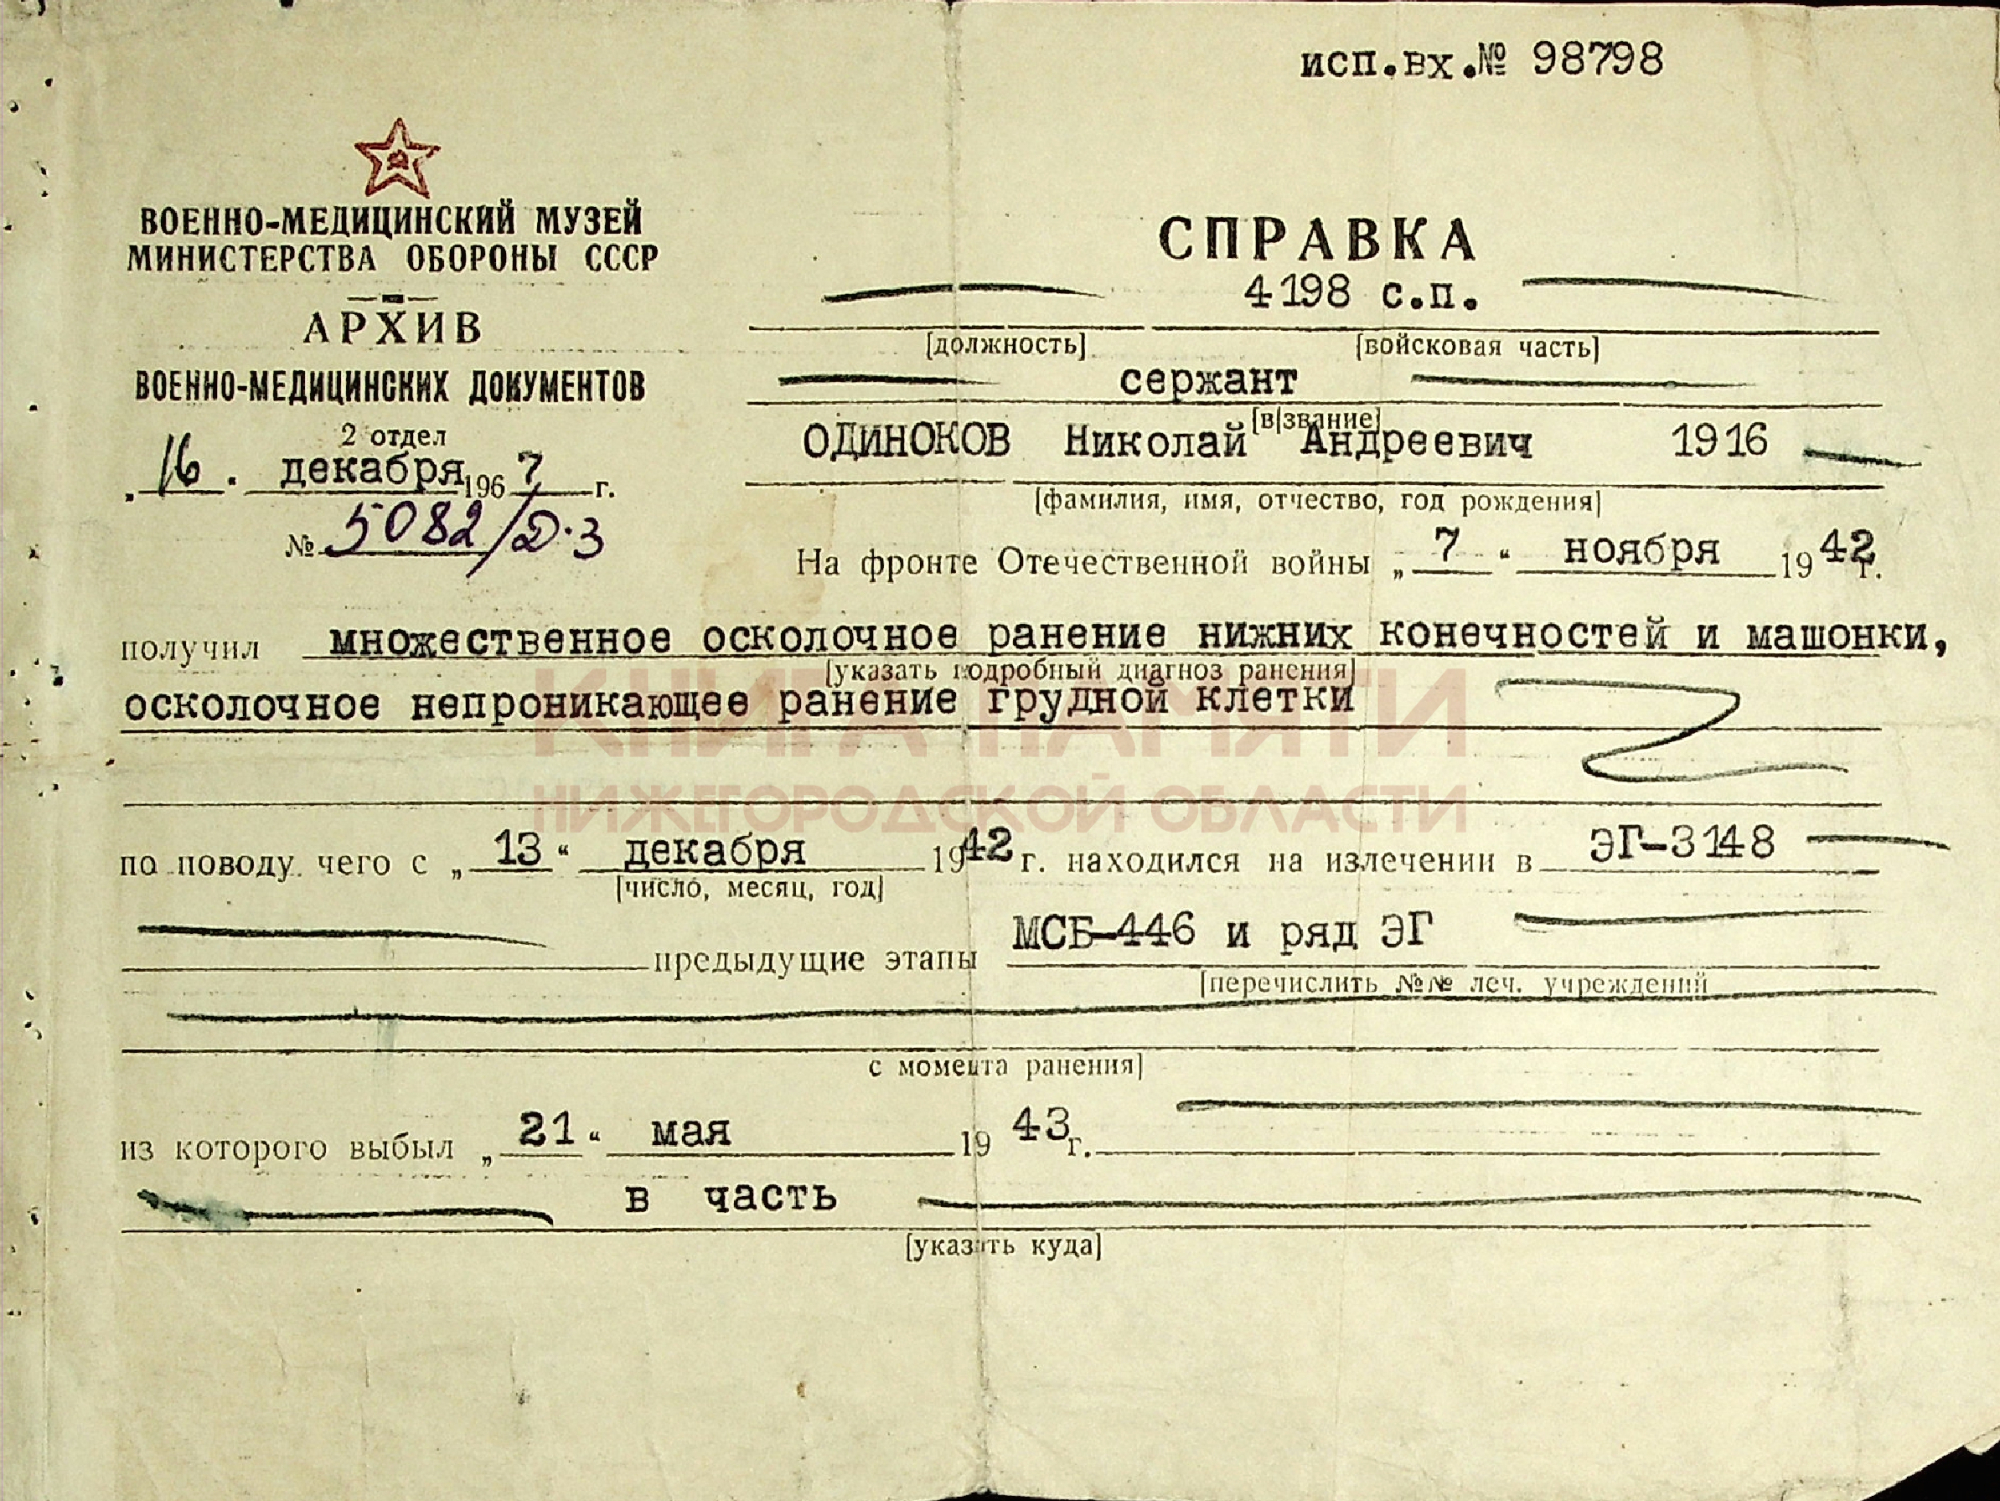 исп.вх.№ 98798
ВОЕННО-МЕДИЦИНСКИЙ МУЗЕЙ
МИНИСТЕРСТВА ОБОРОНЫ СССР
АРХИВ
ВОЕННО-МЕДИЦИНСКИХ ДОКУМЕНТОВ
2 отдел
„16. декабря 1967 г.
№ 5082/Д-3
СПРАВКА
4198 с.п.
[должность] [войсковая часть]
сержант
[в/звание]
ОДИНОКОВ Николай Андреевич 1916
[фамилия, имя, отчество, год рождения]
На фронте Отечественной войны „7“ ноября 1942г.
получил множественное осколочное ранение нижних конечностей и машонки,
[указать подробный диагноз ранения]
осколочное непроникающее ранение грудной клетки
КНИГА ПАМЯТИ
НИЖЕГОРОДСКОЙ ОБЛАСТИ
по поводу чего с „13“ декабря 1942 г. находился на излечении в ЭГ-3148
[число, месяц, год]
предыдущие этапы МСБ-446 и ряд ЭГ
[перечислить №№ леч. учреждений
с момента ранения]
из которого выбыл „21“ мая 1943г.
в часть
[указать куда]